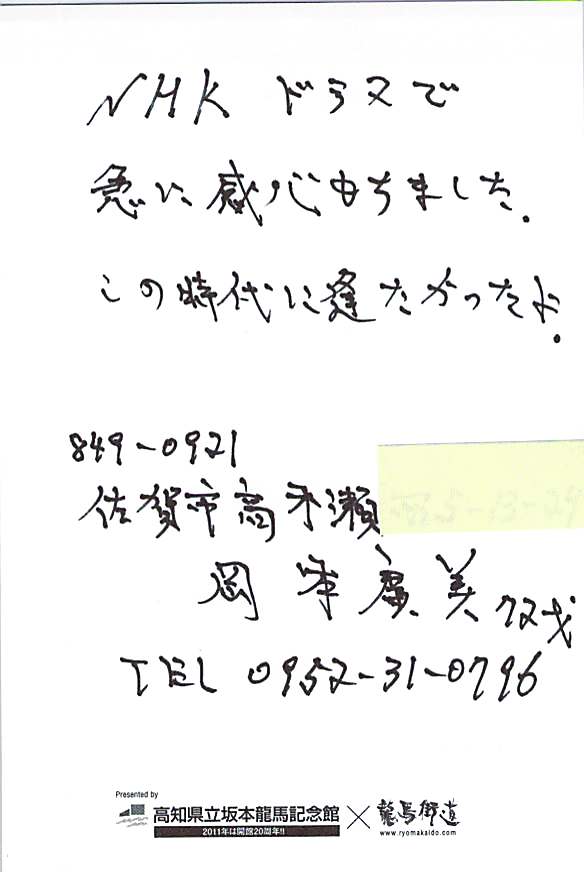 NHK ドラマで
急に感心もちました.
この時代に逢たかったよ.
849-0921
佐賀市高木瀬
岡本廣美 72才
TEL 0952-31-0796
Presented by
高知県立坂本龍馬記念館 × 龍馬街道
2011年は開館20周年!! www.ryomakaido.com